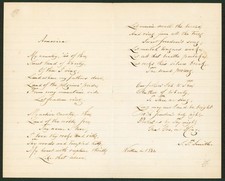 America
My country, 'tis of thee,
Sweet land of liberty,
Of thee I sing;
Land where my fathers died,
Land of the pilgrims' pride,
From every mountain side
Let freedom ring.
My native country, thee,
Land of the noble, free,
Thy name I love;
I love thy rocks and rills,
Thy woods and templed hills,
My heart with rapture thrills
Like that above.
Let music swell the breeze,
And ring from all the trees
Sweet freedom's song;
Let mortal tongues awake,
Let all that breathe partake,
Let rocks their silence break,
The sound prolong.
Our fathers' God, to Thee,
Author of liberty,
To Thee we sing;
Long may our land be bright
With freedom's holy light,
Protect us by Thy might,
Great God, our King.
S. F. Smith.
Written in 1832.